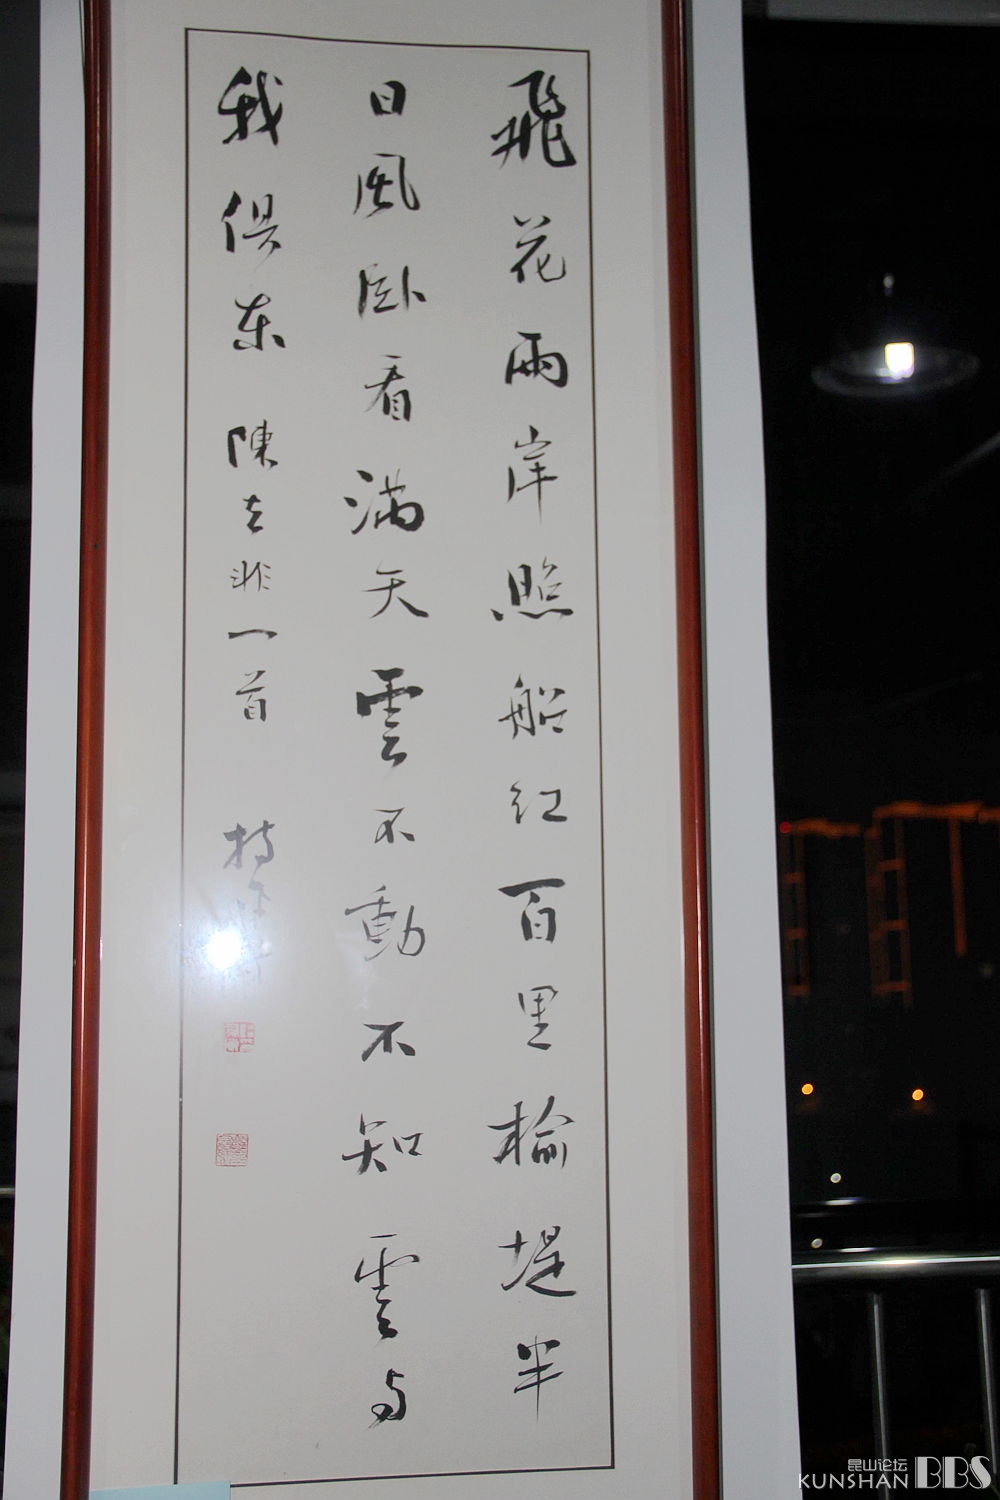 飛花兩岸照船紅百里榆堤半
日風臥看滿天雲不動不知雲与
我俱東 陳去非一首
昆山论坛
KUNSHAN BBS